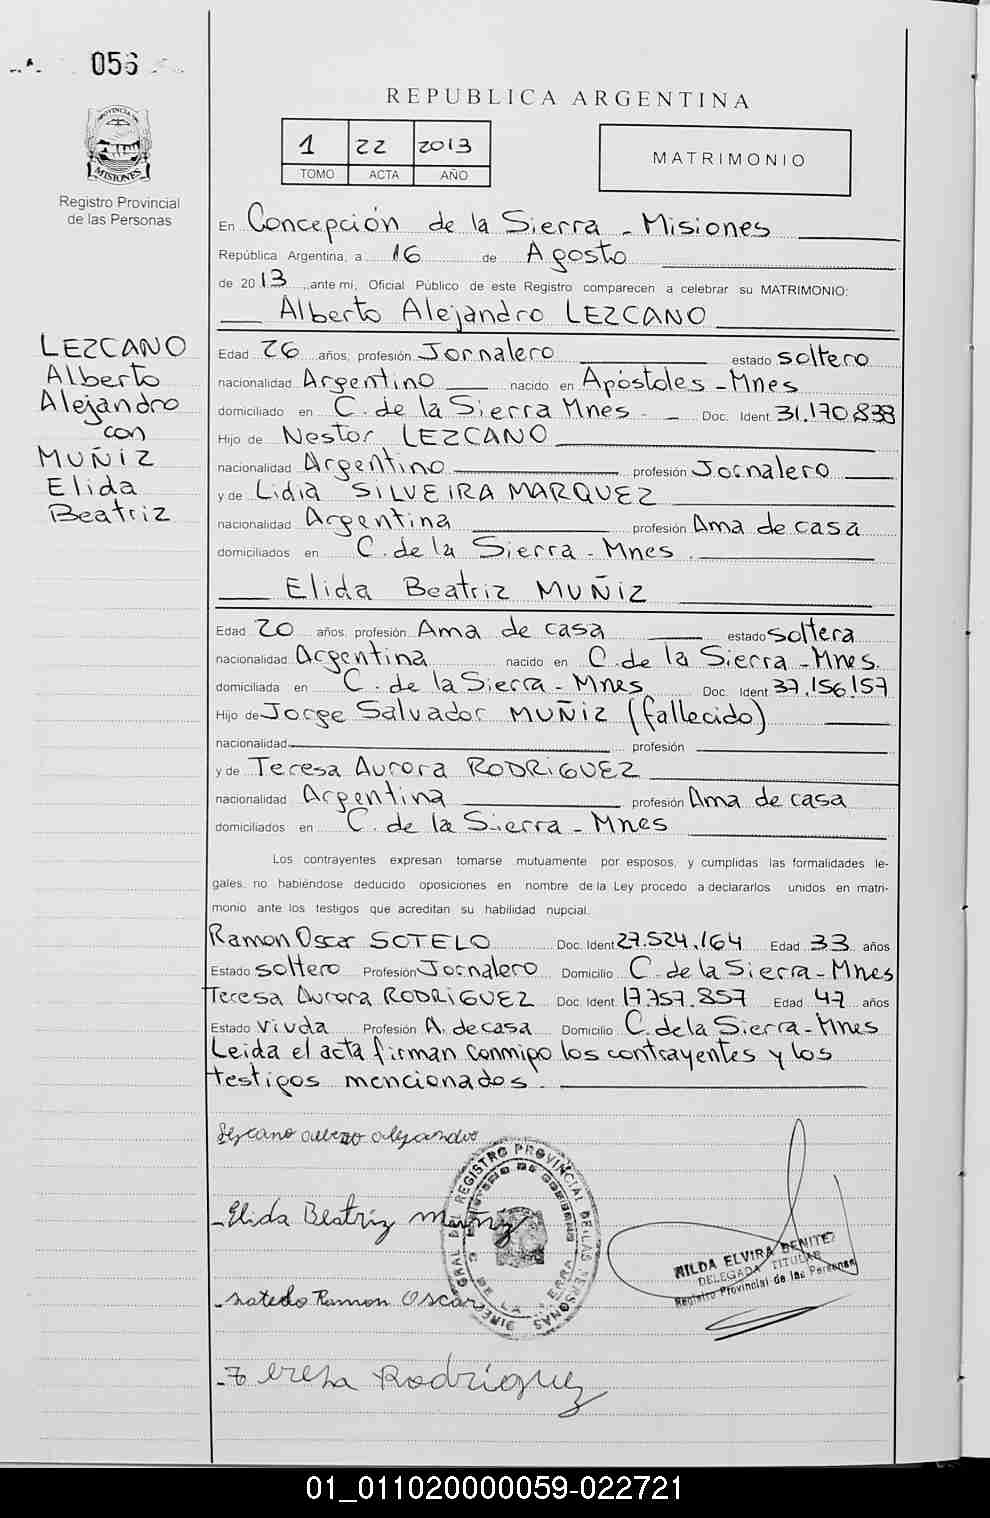 056
REPUBLICA ARGENTINA
PROVINCIA DE
MISIONES
1 22 2013
TOMO ACTA AÑO
MATRIMONIO
Registro Provincial
de las Personas
En Concepción de la Sierra - Misiones
República Argentina, a 16 de Agosto
de 2013, ante mi, Oficial Público de este Registro comparecen a celebrar su MATRIMONIO:
Alberto Alejandro LEZCANO
LEZCANO
Alberto
Alejandro
con
MUÑIZ
Elida
Beatriz
Edad 26 años, profesión Jornalero estado soltero
nacionalidad Argentino nacido en Apóstoles - Mnes
domiciliado en C. de la Sierra Mnes - Doc. Ident 31.170.838
Hijo de Nestor LEZCANO
nacionalidad Argentino profesión Jornalero
y de Lidia SILVEIRA MARQUEZ
nacionalidad Argentina profesión Ama de casa
domiciliados en C. de la Sierra - Mnes.
Elida Beatriz MUÑIZ
Edad 20 años, profesión Ama de casa estado soltera
nacionalidad Argentina nacido en C. de la Sierra - Mnes.
domiciliada en C. de la Sierra - Mnes Doc. Ident 37.156.157
Hijo de Jorge Salvador MUÑIZ (fallecido)
nacionalidad profesión
y de Teresa Aurora RODRIGUEZ
nacionalidad Argentina profesión Ama de casa
domiciliados en C. de la Sierra - Mnes
Los contrayentes expresan tomarse mutuamente por esposos, y cumplidas las formalidades le-
gales, no habiéndose deducido oposiciones en nombre de la Ley procedo a declararlos unidos en matri-
monio ante los testigos que acreditan su habilidad nupcial.
Ramon Oscar SOTELO Doc. Ident 27.524.164 Edad 33 años
Estado soltero Profesión Jornalero Domicilio C. de la Sierra - Mnes
Teresa Aurora RODRIGUEZ Doc. Ident 17.757.857 Edad 47 años
Estado viuda Profesión A. de casa Domicilio C. de la Sierra - Mnes
Leida el acta firman conmigo los contrayentes y los
testigos mencionados.
Lezcano alejandro
- Elida Beatriz Muñiz
DIRECCION GRAL DEL REGISTRO PROVINCIAL DE LAS PERSONAS
MINISTERIO DE GOBIERNO
NILDA ELVIRA BENITEZ
DELEGADA TITULAR
Registro Provincial de las Personas
- Ramon Oscar
- Teresa Rodriguez
01_011020000059-022721